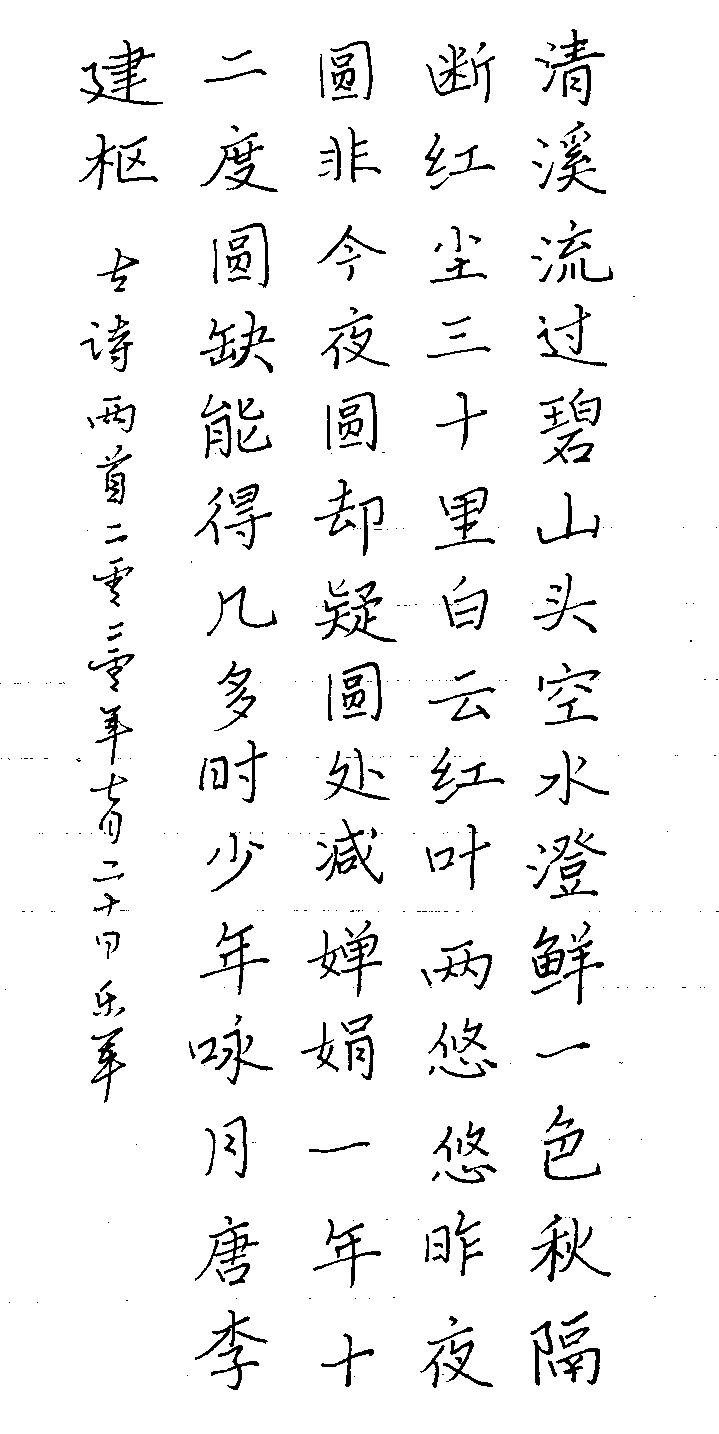 清溪流过碧山头空水澄鲜一色秋隔
断红尘三十里白云红叶两悠悠昨夜
圆非今夜圆却疑圆处减婵娟一年十
二度圆缺能得几多时少年咏月唐李
建枢 古诗两首二零二零年七月二十日乐军